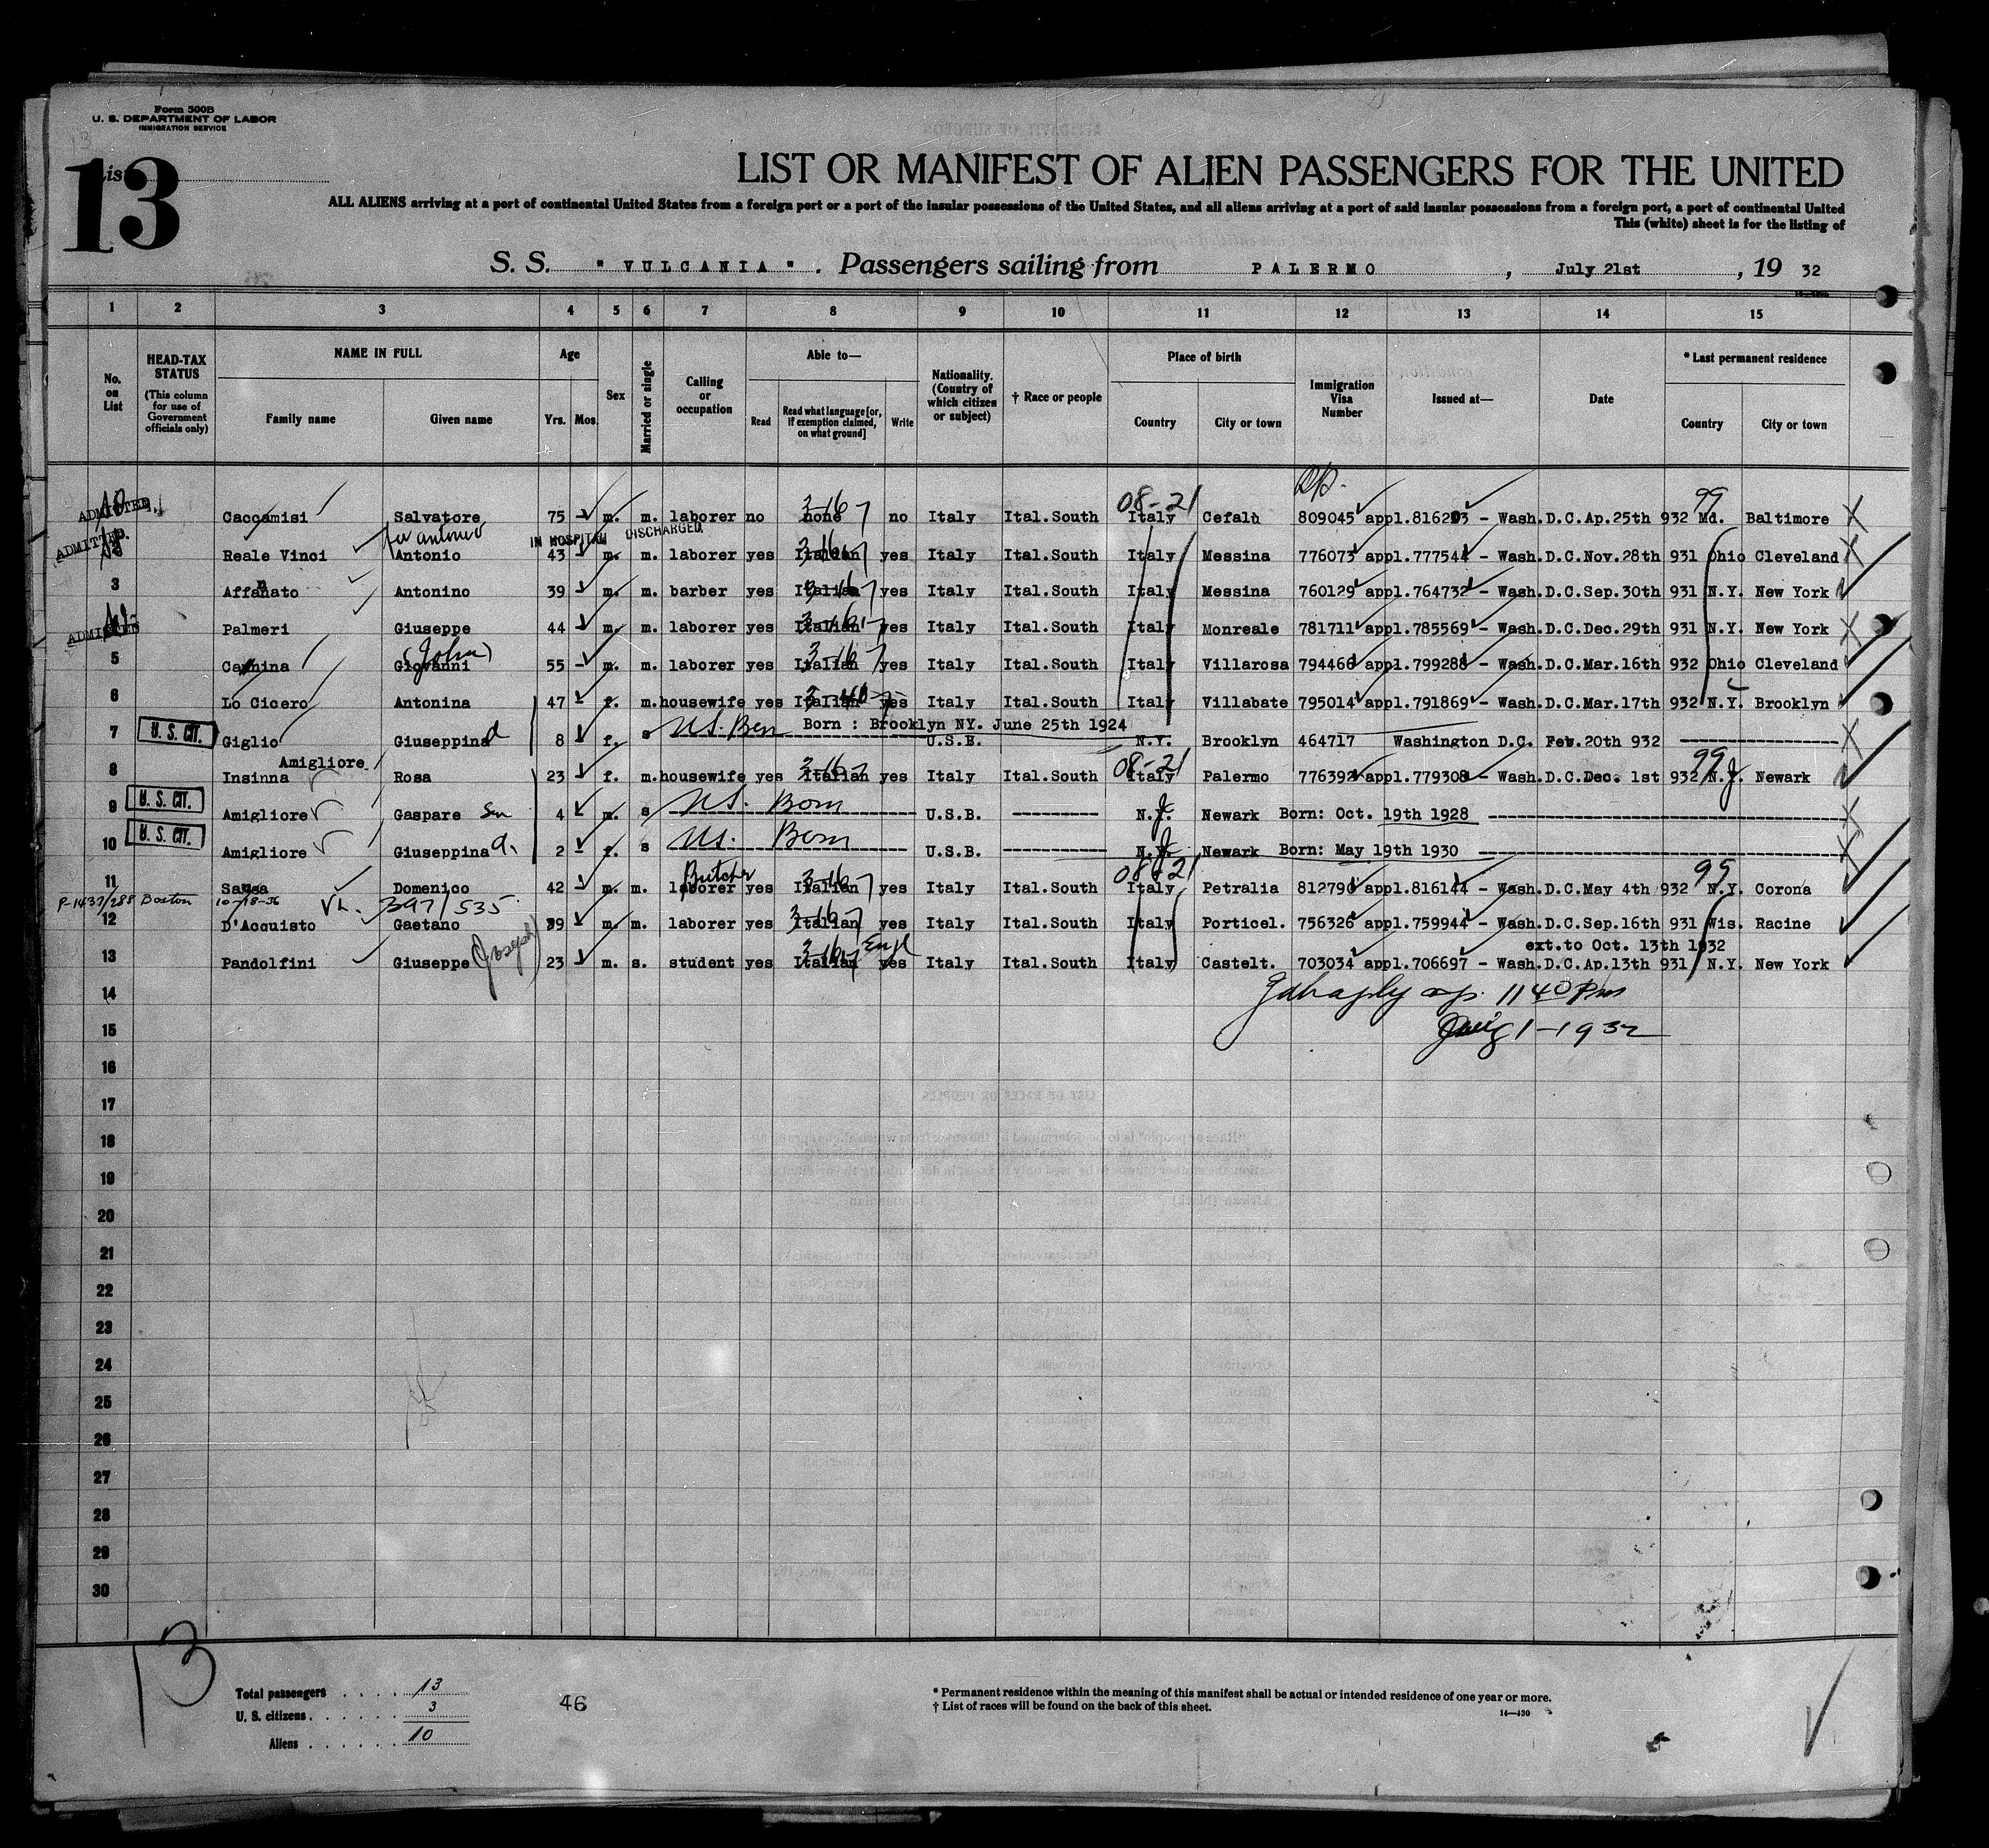 Form 500B
U. S. DEPARTMENT OF LABOR
IMMIGRATION SERVICE
List 13
LIST OR MANIFEST OF ALIEN PASSENGERS FOR THE UNITED
ALL ALIENS arriving at a port of continental United States from a foreign port or a port of the insular possessions of the United States, and all aliens arriving at a port of said insular possessions from a foreign port, a port of continental United
This (white) sheet is for the listing of
S. S. "VULCANIA". Passengers sailing from PALERMO, July 21st, 19 32
1 2 3 4 5 6 7 8 9 10 11 12 13 14 15
No. on List
HEAD-TAX STATUS (This column for use of Government officials only)
NAME IN FULL Family name Given name
Age Yrs. Mos.
Sex
Married or single
Calling or occupation
Able to— Read Read what language [or, if exemption claimed, on what ground] Write
Nationality. (Country of which citizen or subject)
† Race or people
Place of birth Country City or town
Immigration Visa Number
Issued at—
Date
* Last permanent residence Country City or town
08-21 99
ADMITTED Caccamisi Salvatore 75 - m. m. laborer no none no Italy Ital.South Italy Cefalù 809045 appl.816203 - Wash.D.C.Ap.25th 932 Md. Baltimore
IN HOSPITAL DISCHARGED
ADMITTED Reale Vinci Antonio 43 - m. m. laborer yes Italian yes Italy Ital.South Italy Messina 776073 appl.777544 - Wash.D.C.Nov.28th 931 Ohio Cleveland
3 Affanato Antonino 39 - m. m. barber yes Italian yes Italy Ital.South Italy Messina 760129 appl.764732 - Wash.D.C.Sep.30th 931 N.Y. New York
ADMITTED Palmeri Giuseppe 44 - m. m. laborer yes Italian yes Italy Ital.South Italy Monreale 781711 appl.785569 - Wash.D.C.Dec.29th 931 N.Y. New York
(John)
5 Camina Giovanni 55 - m. m. laborer yes Italian yes Italy Ital.South Italy Villarosa 794466 appl.799288 - Wash.D.C.Mar.16th 932 Ohio Cleveland
6 Lo Cicero Antonina 47 - f. m. housewife yes Italian yes Italy Ital.South Italy Villabate 795014 appl.791869 - Wash.D.C.Mar.17th 932 N.Y. Brooklyn
U.S. Born Born : Brooklyn NY. June 25th 1924
7 U. S. CIT. Giglio Giuseppina 8 f. s U.S.B. N.Y. Brooklyn 464717 Washington D.C. Feb.20th 932
Amigliore 08-21 99
8 Insinna Rosa 23 - f. m. housewife yes Italian yes Italy Ital.South Italy Palermo 776392 appl.779308 - Wash.D.C.Dec. 1st 932 N.J. Newark
9 U. S. CIT. Amigliore Gaspare 4 - m. s U.S. Born U.S.B. N.J. Newark Born: Oct. 19th 1928
10 U. S. CIT. Amigliore Giuseppina 2 - f. s U.S. Born U.S.B. N.J. Newark Born: May 19th 1930
Butcher 08-21 99
11 Domenico 42 - m. m. laborer yes Italian yes Italy Ital.South Italy Petralia 812790 appl.816144 - Wash.D.C.May 4th 932 N.Y. Corona
P-1437/288 Boston 10-18-36 397/535
12 D'Acquisto Gaetano 39 m. m. laborer yes Italian yes Italy Ital.South Italy Porticel. 756326 appl.759944 - Wash.D.C.Sep.16th 931 Wis. Racine
(Joseph) Engl ext.to Oct. 13th 1932
13 Pandolfini Giuseppe 23 - m. s. student yes Italian yes Italy Ital.South Italy Castelt. 703034 appl.706697 - Wash.D.C.Ap.13th 931 N.Y. New York
14 1140 Pm
15 Aug 1-1932
16
17
18
19
20
21
22
23
24
25
26
27
28
29
30
13
Total passengers . . . . 13
U. S. citizens . . . . . . 3
Aliens . . . . . . 10
46
* Permanent residence within the meaning of this manifest shall be actual or intended residence of one year or more.
† List of races will be found on the back of this sheet.
14—430